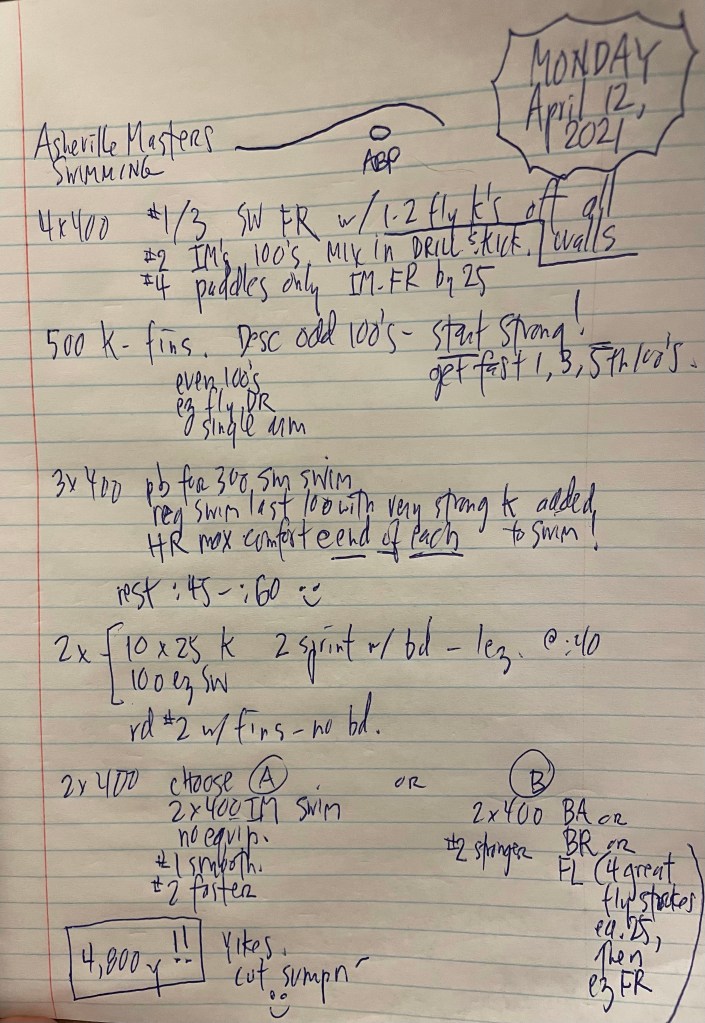 MONDAY
April 12,
2021
Asheville Masters
SWIMMING
ABP
4x400 #1/3 SW FR w/ 1-2 fly k's off all walls
#2 IM's 100's. Mix in DRILL & kick.
#4 paddles only IM-FR by 25
500 k - fins. Desc odd 100's - start strong!
get fast 1, 3, 5th 100's.
even 100's
ez fly DR
single arm
3x400 pb for 300, sm swim
reg swim last 100 with very strong k added
HR max comfort end of each to swim!
rest :45-:60
2x 10 x 25 k 2 sprint w/ bd - 1ez. @:40
100 ez SW
rd #2 w/ fins - no bd.
2x400 choose A OR B
2x400 IM swim
no equip.
#1 smooth.
#2 faster
2x400 BA or
#2 stronger BR or
FL (4 great
fly strokes
ea. 25,
then
ez FR
4,800y!!
Yikes.
cut sumpn'